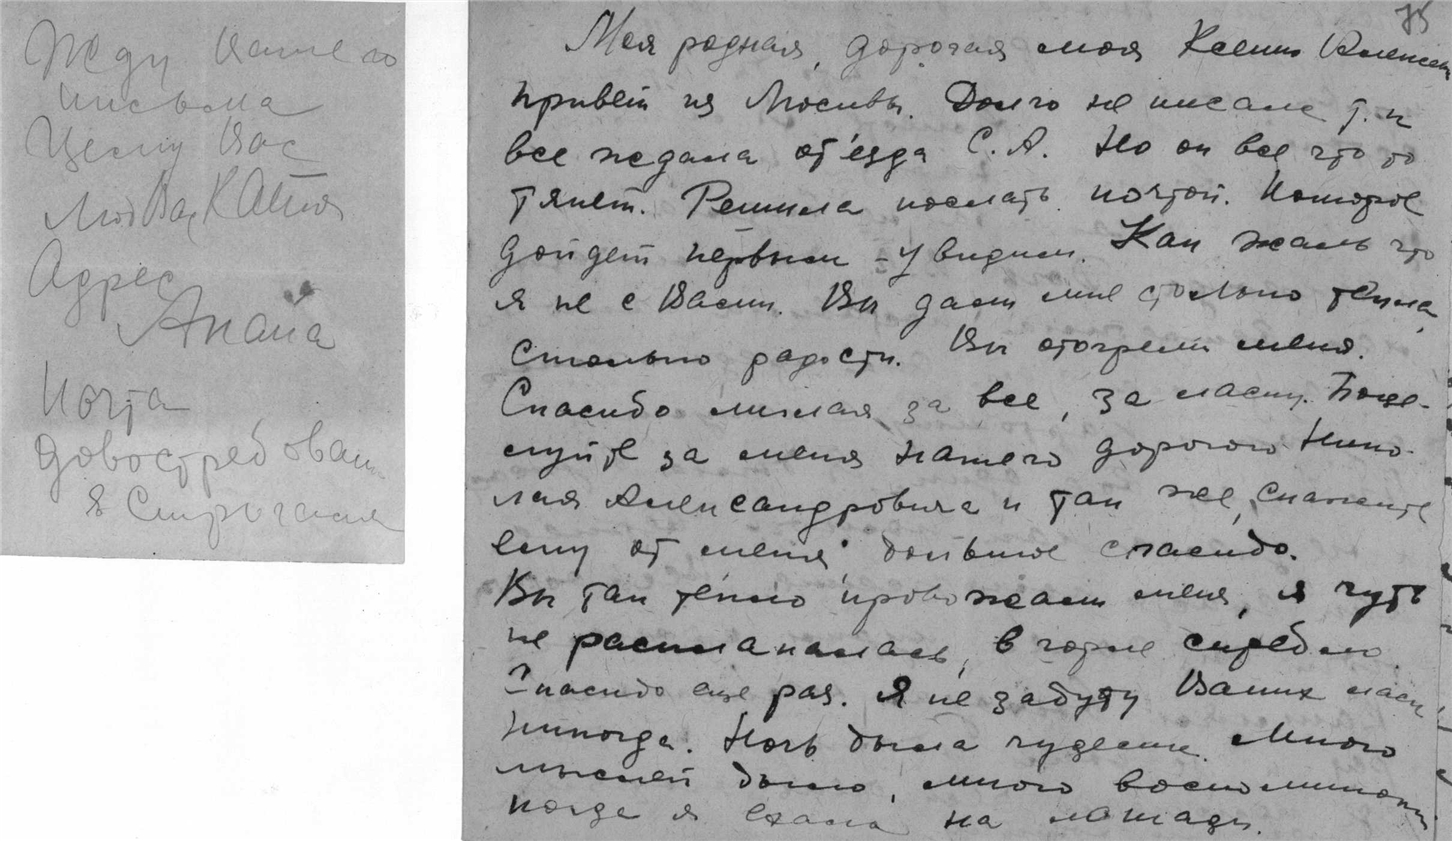 Жду Вашего
письма
Целую Вас
Люб Вас Катя
Адрес
Анапа
Почта
довостребован
я Стрычкая
75
Моя родная, дорогая моя Ксения
привет из Москвы. Долго не писала т.к
все ждала от'езда С.А. Но он все что то
тянет. Решила послать почтой. Которое
дойдет первым - увидим. Как жаль что
я не с Вами. Вы дали мне столько тепла,
столько радости. Вы отогрели меня.
Спасибо милая за все, за ласку. Поце-
луйте за меня нашего дорогого Нико-
лая Александровича и так же, скажите
ему от меня большое спасибо.
Вы так тепло провожали меня, я чуть
не расплакалась, в горле скребло.
Спасибо еще раз. Я не забуду Ваших ласк
никогда. Ночь была чудесная. Много
мыслей было, много воспоминаний
когда я ехала на лошади.